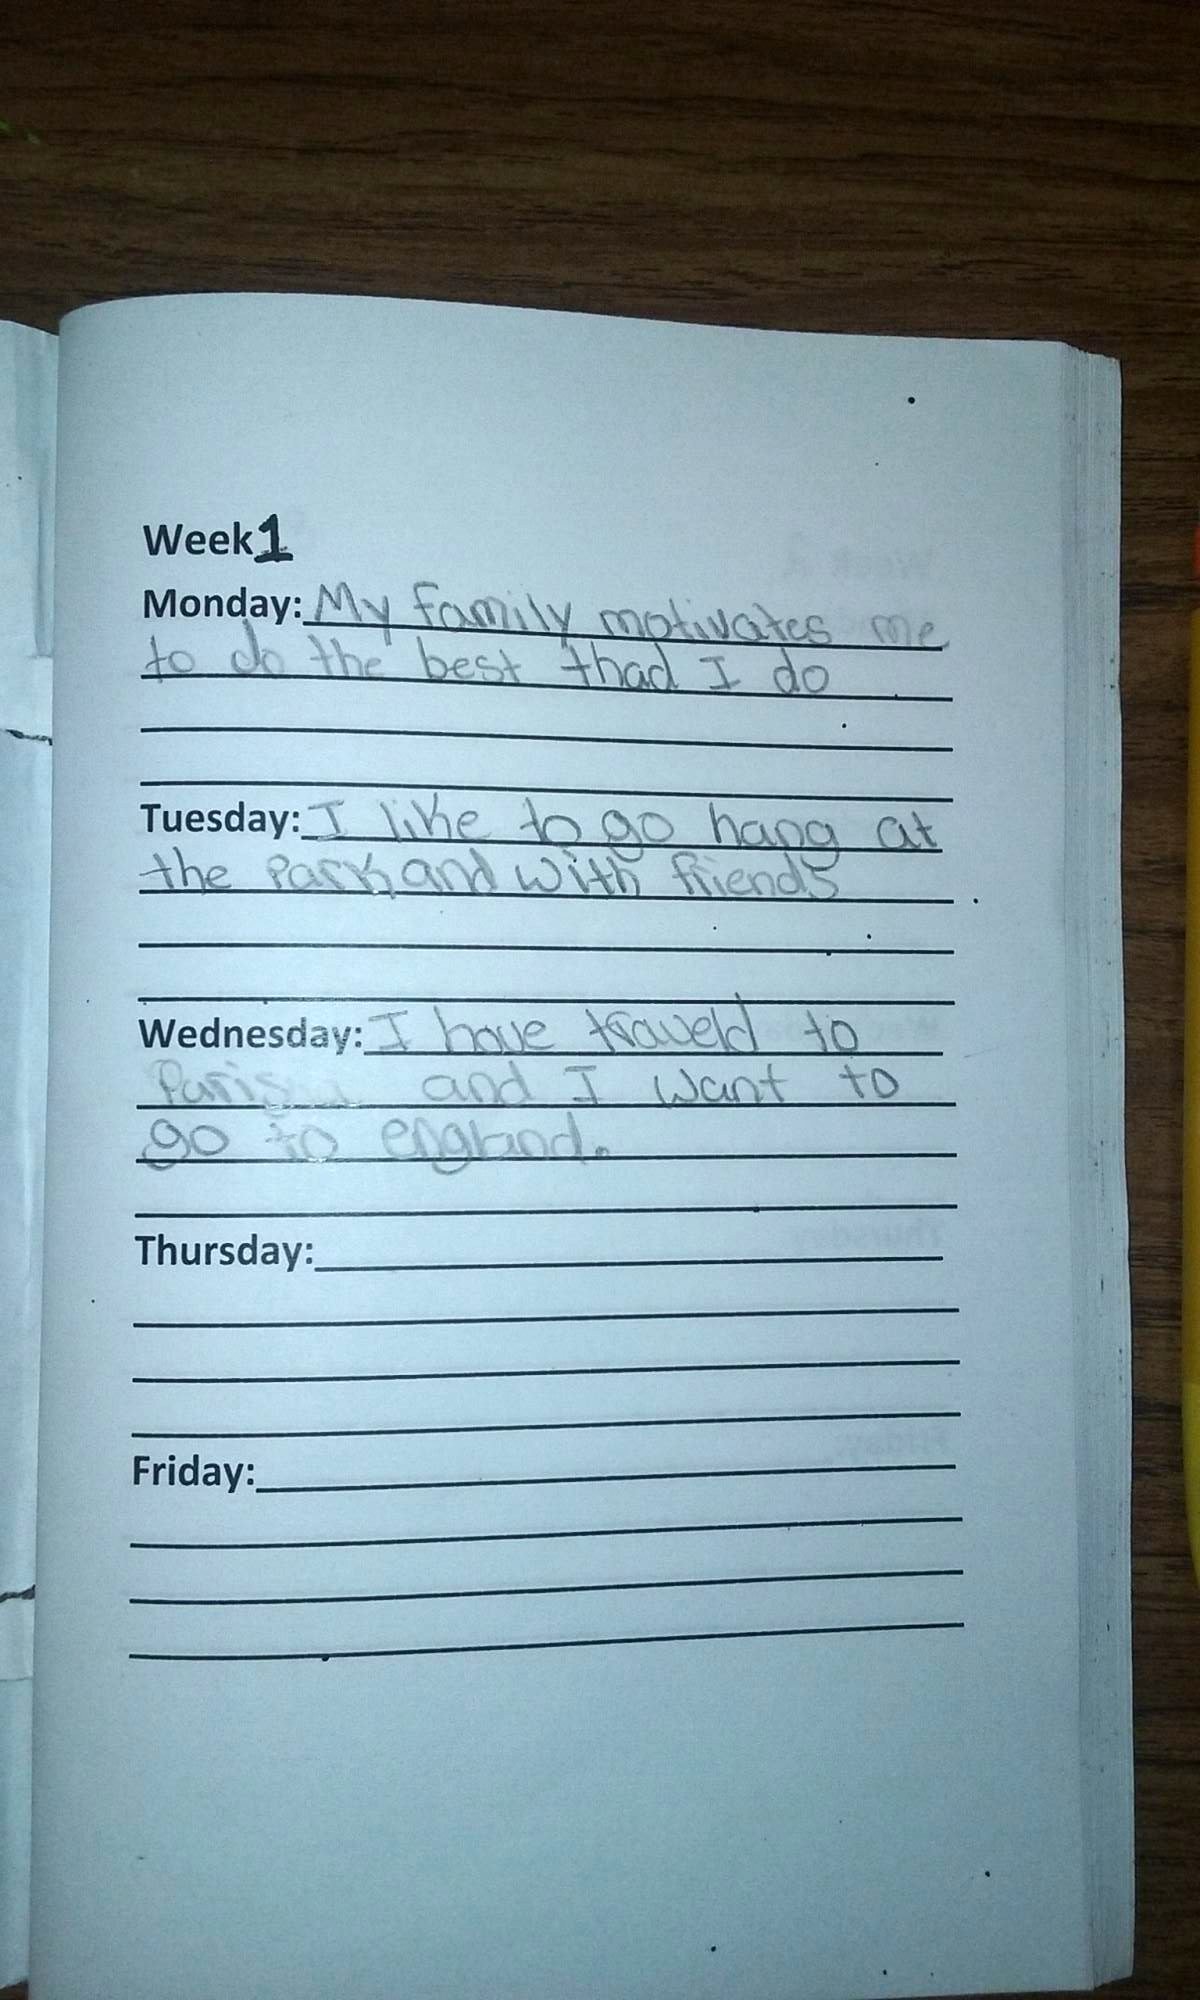 Week 1
Monday: My family motivates me
to do the best thad I do
Tuesday: I like to go hang at
the Park and with friends
Wednesday: I have traveld to
Paris and I want to
go to england.
Thursday:
Friday: